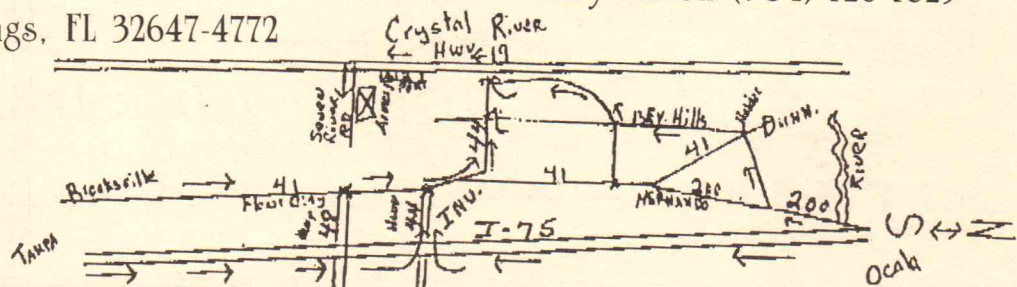 ngs, FL 32647-4772
Crystal River
← Hwy 19
Seven
Rivers
RD
AIRPORT
44
BEV. Hills
DUNN.
41
RIVER
Brooksville
41
Floral City
Hwy
48
Hwy
44
INV.
41
HERNANDO
200
200
TAMPA
I-75
S ↔ N
Ocala